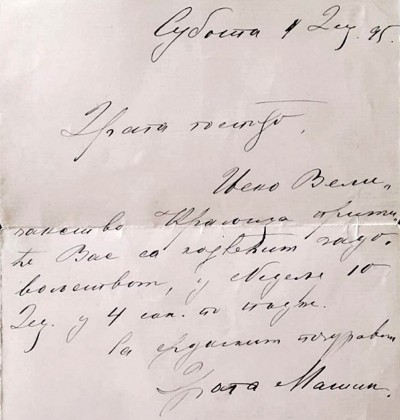 Субота 9 Дец. 95.
Драга госпођо,
Њено Вели-
чанство Краљица прими-
ће Вас са највећим задо-
вољством, у Недељу 10
Дец. у 4 сах. по подн.
Са срдачним поздравом
Драга Машин.